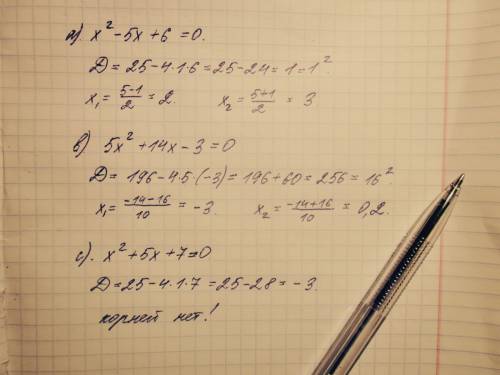 а). x² - 5x + 6 = 0.
D = 25 - 4·1·6 = 25 - 24 = 1 = 1².
x₁ = (5-1)/2 = 2. x₂ = (5+1)/2 = 3
в) 5x² + 14x - 3 = 0
D = 196 - 4·5·(-3) = 196 + 60 = 256 = 16²
x₁ = (-14-16)/10 = -3. x₂ = (-14+16)/10 = 0,2.
с). x² + 5x + 7 = 0
D = 25 - 4·1·7 = 25 - 28 = -3.
корней нет!